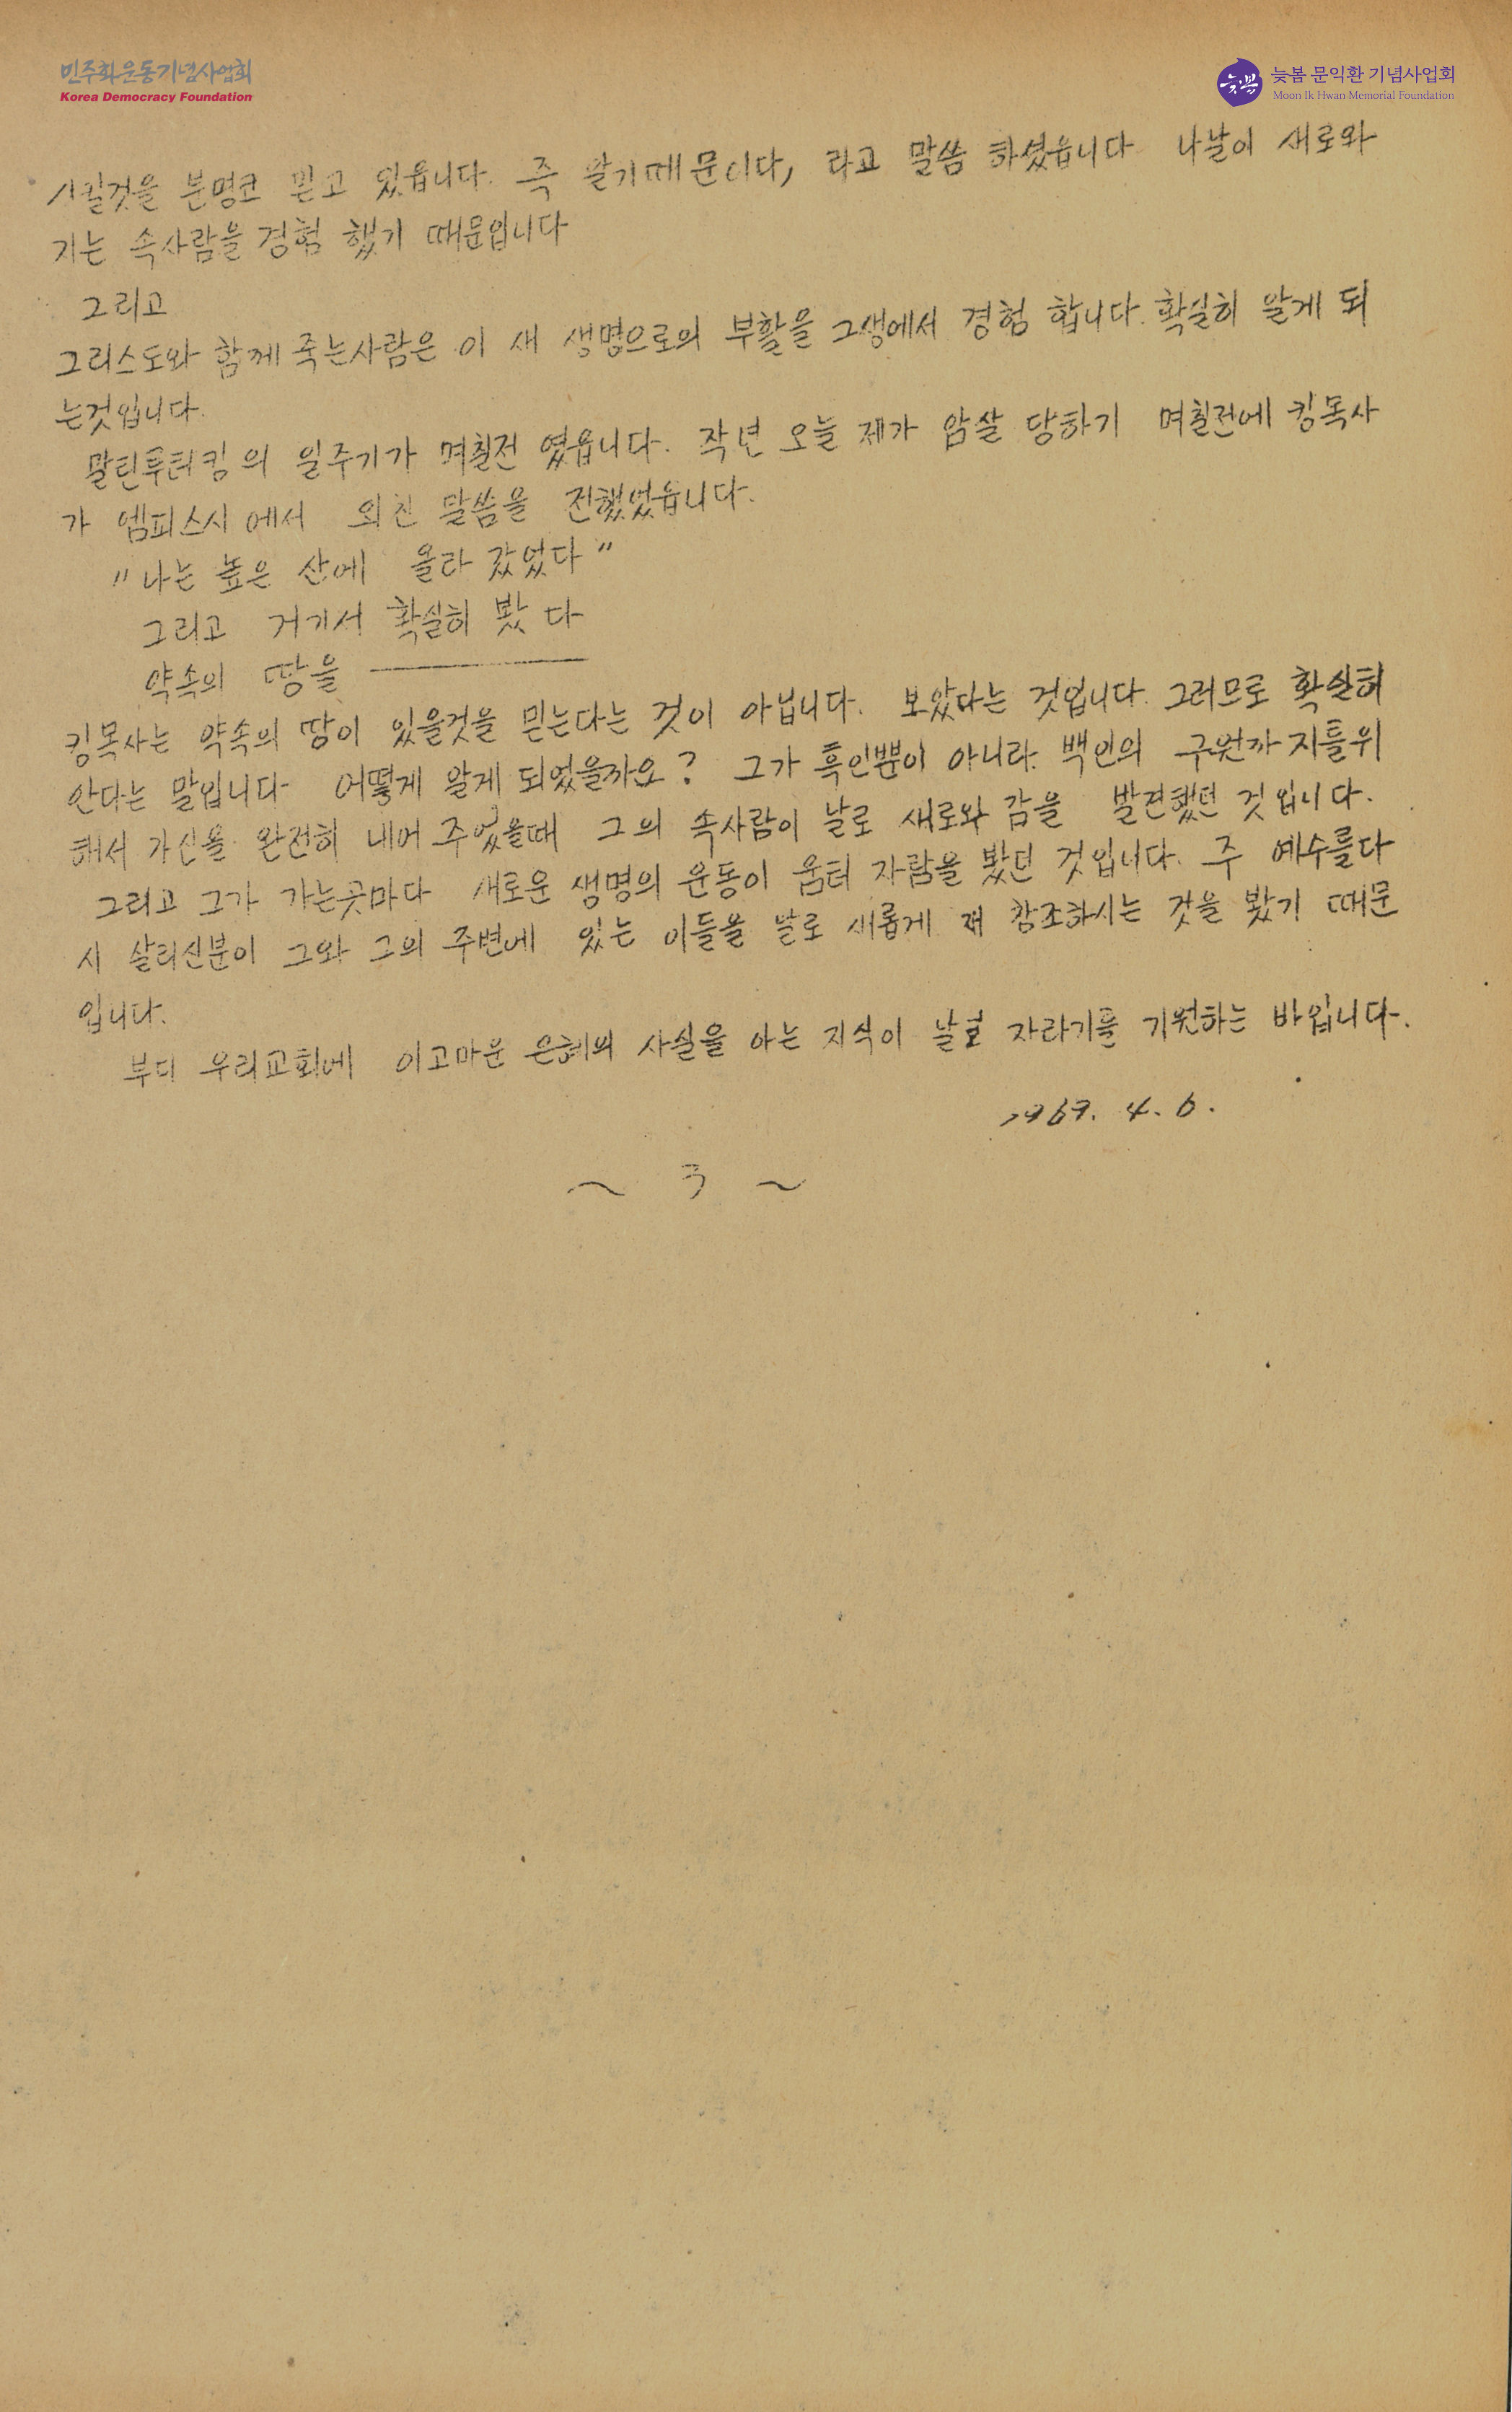 민주화운동기념사업회
Korea Democracy Foundation
늦봄 문익환 기념사업회
Moon Ik Hwan Memorial Foundation
시킬것을 분명코 믿고 있읍니다. 즉 알기때문이다, 라고 말씀 하셨읍니다 나날이 새로와
지는 속사람을 경험 했기 때문입니다
그리고
그리스도와 함께 죽는사람은 이 새 생명으로의 부활을 그생에서 경험 합니다. 확실히 알게 되
는것입니다.
말틴루터킹의 일주기가 며칠전 였읍니다. 작년 오늘 제가 암살 당하기 며칠전에 킹목사
가 엠피스시에서 외친 말씀을 전했었읍니다.
"나는 높은 산에 올라 갔었다"
그리고 거기서 확실히 봤다
약속의 땅을 ――――
킹목사는 약속의 땅이 있을것을 믿는다는 것이 아닙니다. 보았다는 것입니다. 그러므로 확실히
안다는 말입니다 어떻게 알게 되었을까요? 그가 흑인뿐이 아니라 백인의 구원까지를위
해서 가신을 완전히 내어 주었을때 그의 속사람이 날로 새로와 감을 발견했던 것입니다.
그리고 그가 가는곳마다 새로운 생명의 운동이 움터 자람을 봤던 것입니다. 주 예수를다
시 살리신분이 그와 그의 주변에 있는 이들을 날로 새롭게 재 창조하시는 것을 봤기 때문
입니다.
부디 우리교회에 이고마운 은혜의 사실을 아는 지식이 날로 자라기를 기원하는 바입니다.
1969. 4. 6.
~ 3 ~